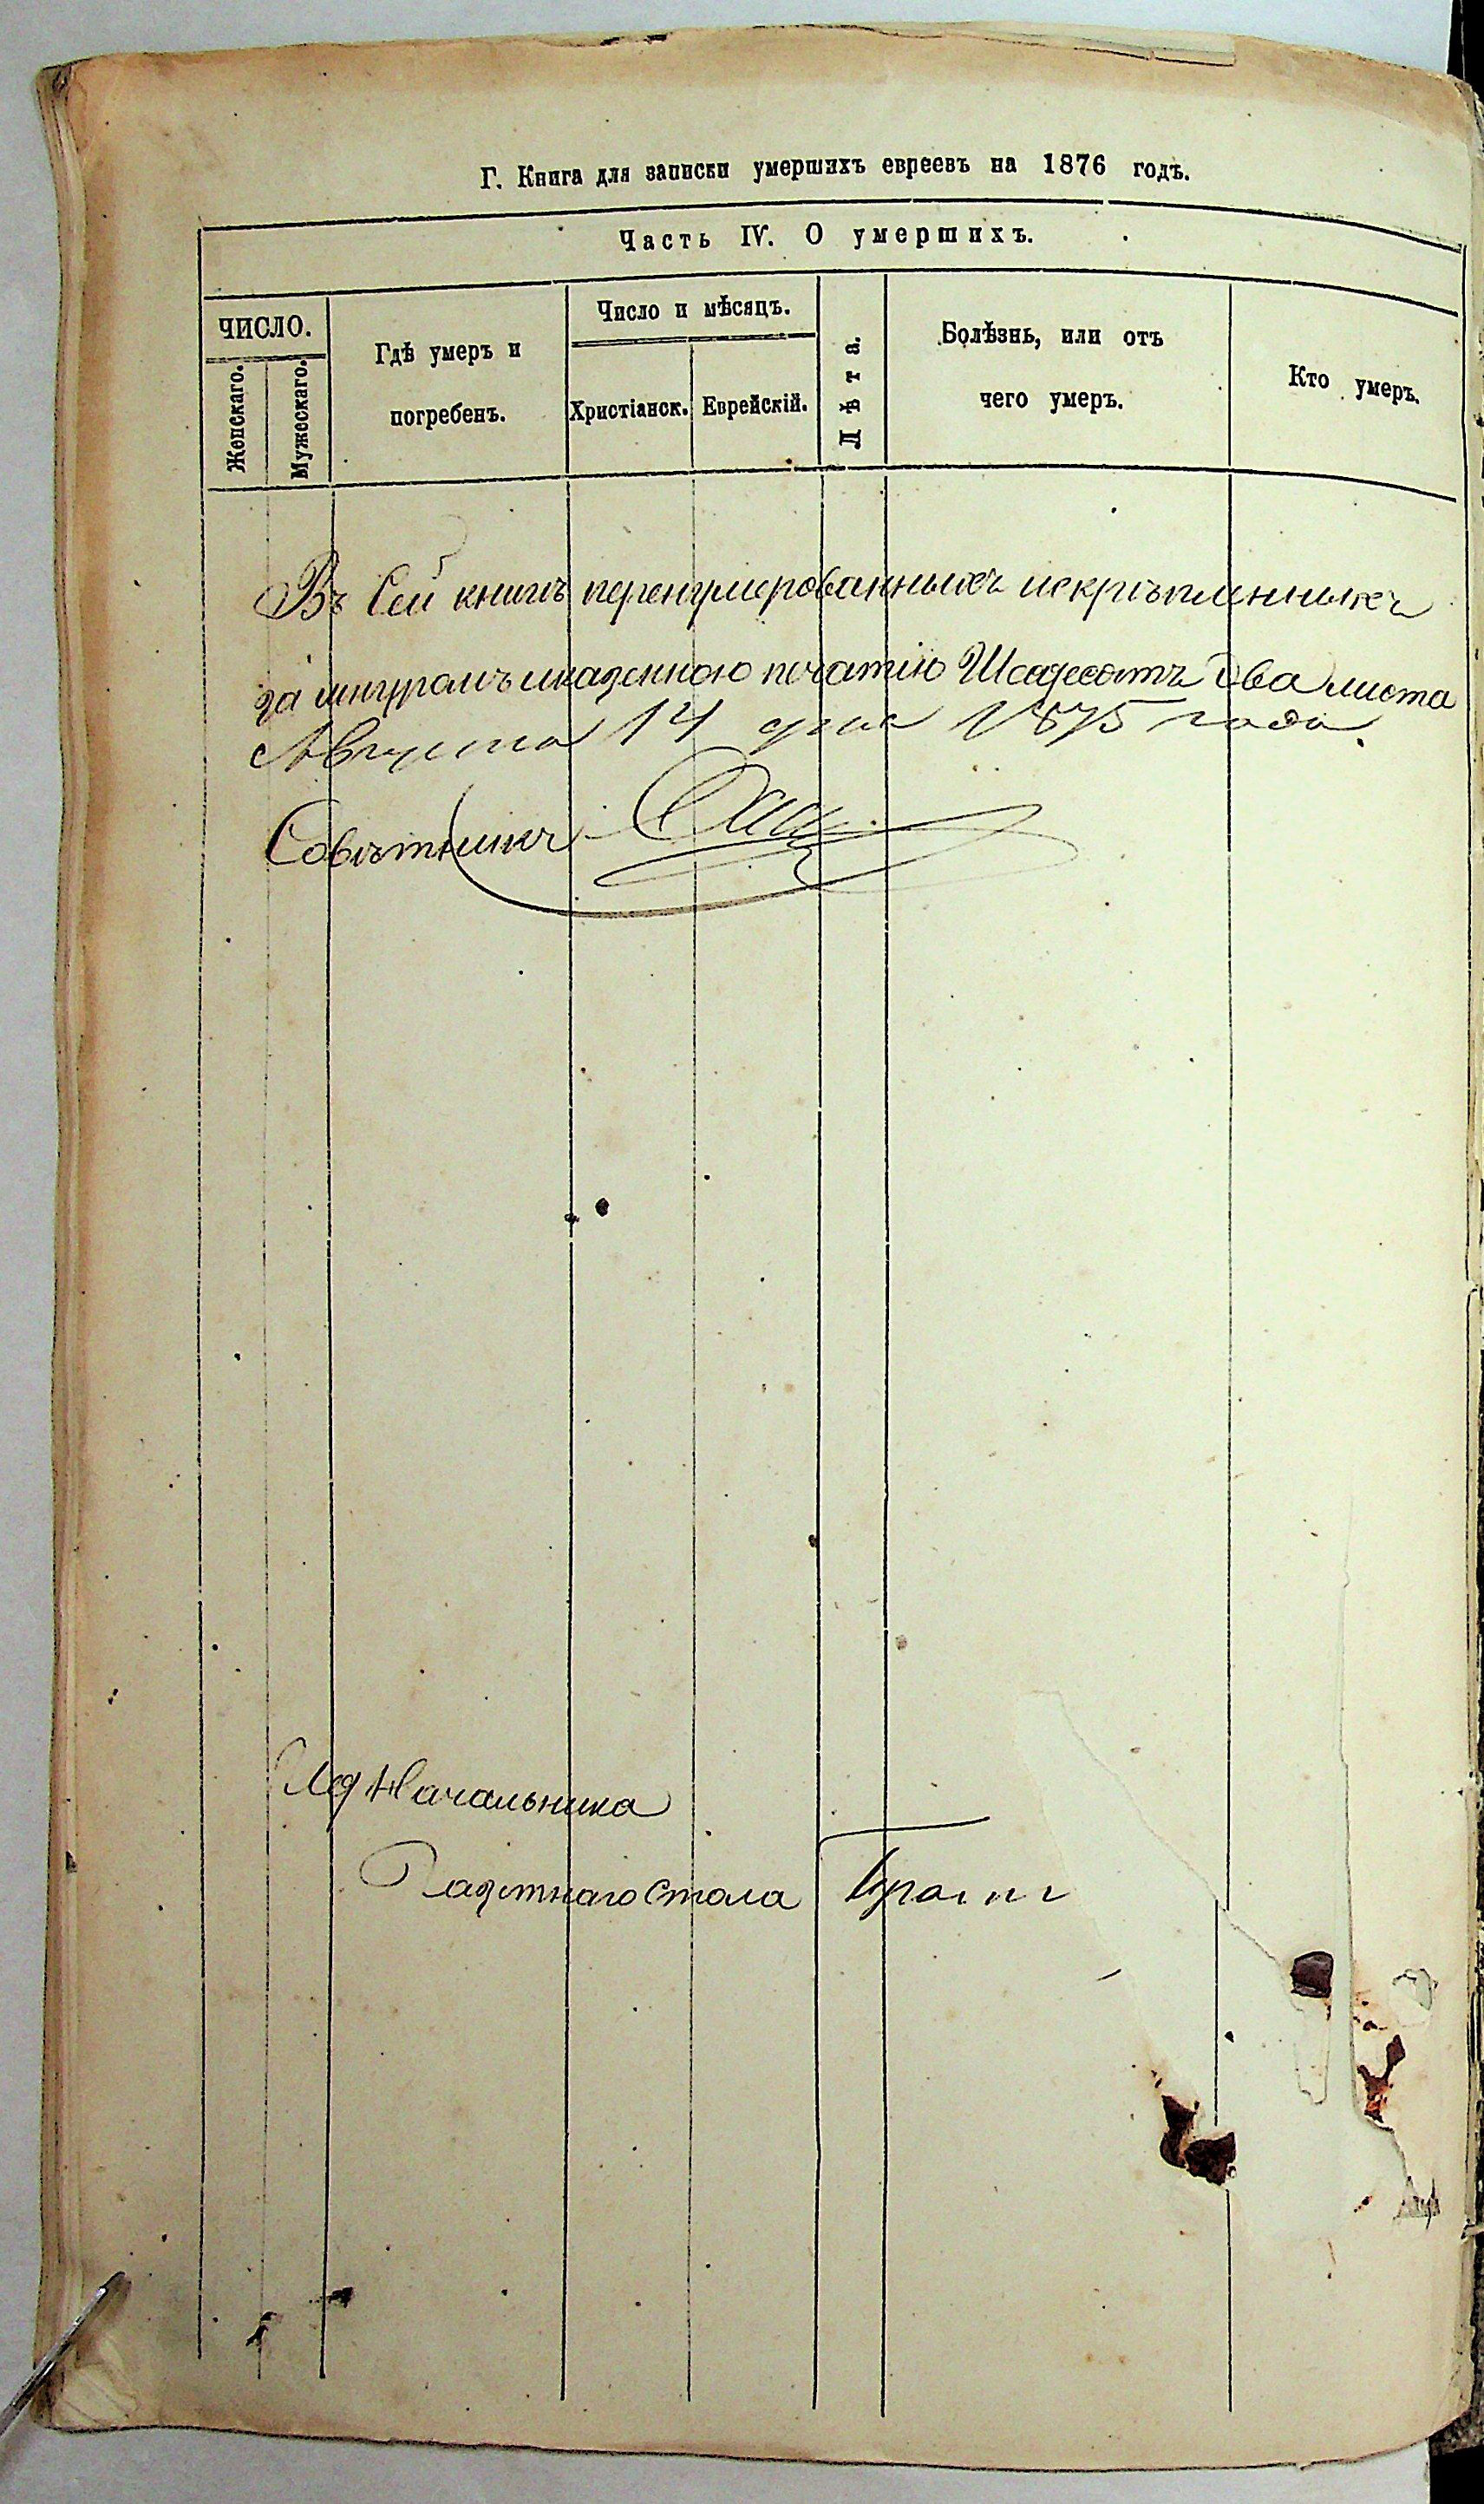 Г. Книга для записки умершихъ евреевъ на 1876 годъ.
Часть IV. О умершихъ.
ЧИСЛО.
Женскаго.
Мужескаго.
Гдѣ умеръ и
погребенъ.
Число и мѣсяцъ.
Христіанск.
Еврейскій.
Лѣта.
Болѣзнь, или отъ
чего умеръ.
Кто умеръ.
Въ Сей книгѣ перенумерованныхъ искрѣпленныхъ
за шнуромъ иказенною печатію Шесдесятъ два листа
Августа 14 дня 1875 года.
Совѣтникъ
Начальника
Газетнаго Стола